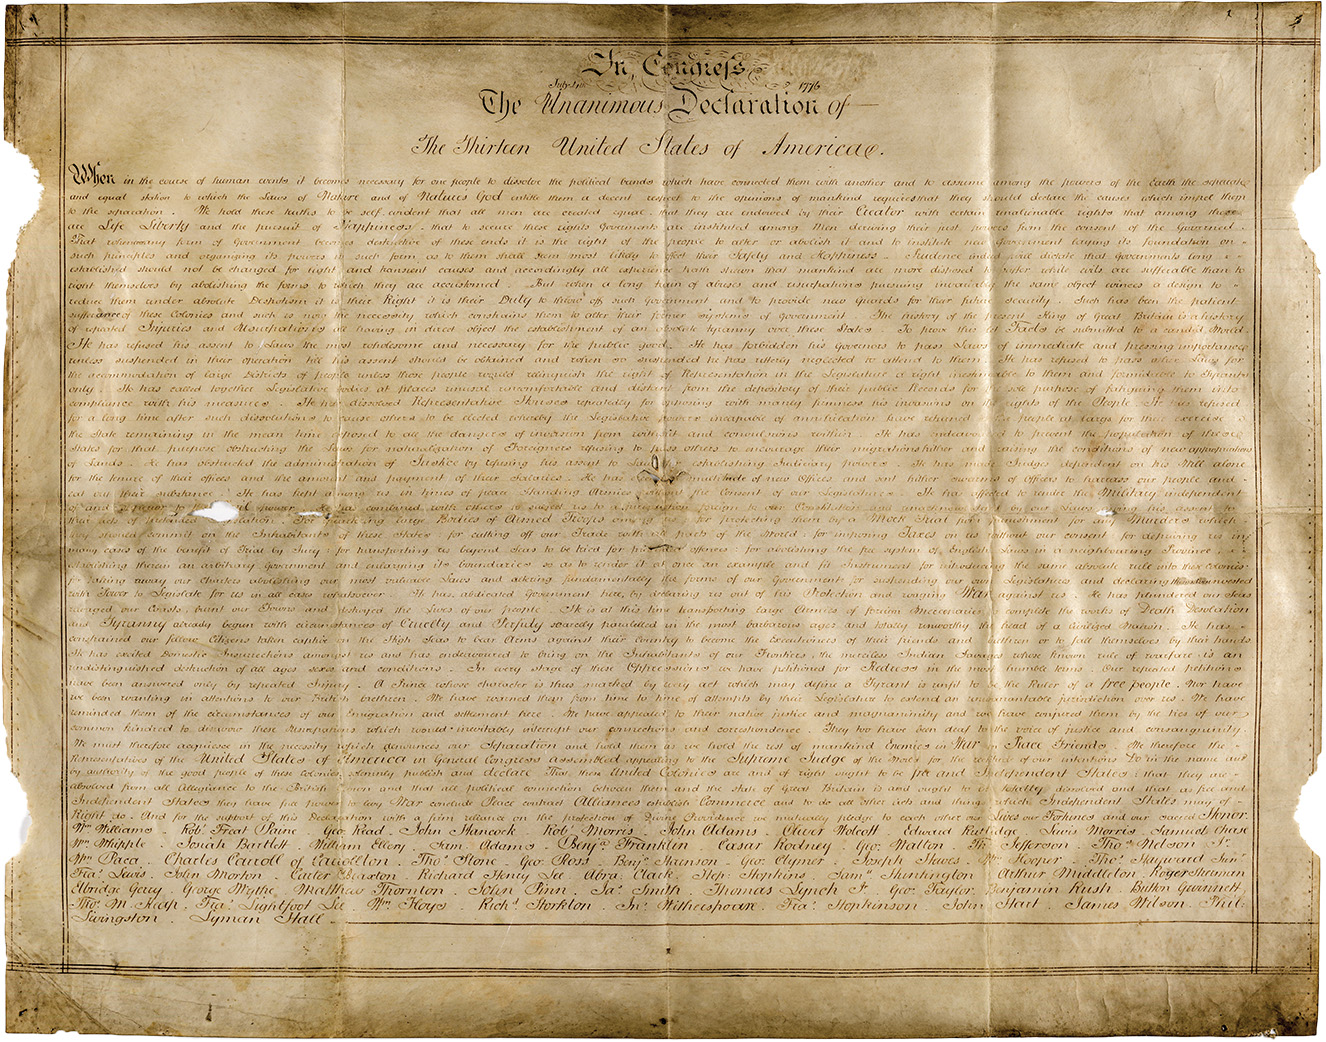 In Congress
July 4th 1776
The Unanimous Declaration of
The Thirteen United States of America.
When in the course of human events it becomes necessary for one people to dissolve the political bands which have connected them with another and to assume among the powers of the Earth the separate
and equal station to which the Laws of Nature and of Natures God entitle them a decent respect to the opinions of mankind requires that they should declare the causes which impel them
to the separation. We hold these truths to be self-evident that all men are created equal that they are endowed by their Creator with certain unalienable rights that among these
are Life Liberty and the pursuit of Happiness - that to secure these rights Governments are instituted among Men deriving their just powers from the consent of the Governed.
That whenever any form of Government becomes destructive of these ends it is the right of the people to alter or abolish it and to institute new Government laying its foundation on
such principles and organizing its powers in such form as to them shall seem most likely to effect their Safety and Happiness. Prudence indeed will dictate that Governments long
established should not be changed for light and transient causes and accordingly all experience hath shewn that mankind are more disposed to suffer while evils are sufferable than to
right themselves by abolishing the forms to which they are accustomed. But when a long train of abuses and usurpations pursuing invariably the same object evinces a design to
reduce them under absolute Despotism it is their Right it is their Duty to throw off such Government and to provide new Guards for their future security. Such has been the patient
sufferance of these Colonies and such is now the necessity which constrains them to alter their former Systems of Government. The history of the present King of Great Britain is a history
of repeated Injuries and Usurpations all having in direct object the establishment of an absolute tyranny over these States. To prove this let Facts be submitted to a candid World.
He has refused his assent to Laws the most wholesome and necessary for the public good. He has forbidden his Governors to pass Laws of immediate and pressing importance
unless suspended in their operation till his assent should be obtained and when so suspended he has utterly neglected to attend to them. He has refused to pass other Laws for
the accommodation of large Districts of people unless those people would relinquish the right of Representation in the Legislature a right inestimable to them and formidable to Tyrants
only. He has called together Legislative bodies at places unusual uncomfortable and distant from the depository of their public Records for the sole purpose of fatiguing them into
compliance with his measures. He has dissolved Representative Houses repeatedly for opposing with manly firmness his invasions on the rights of the People. He has refused
for a long time after such dissolutions to cause others to be elected whereby the Legislative powers incapable of annihilation have returned to the people at large for their exercise
the State remaining in the mean time exposed to all the dangers of invasion from without and convulsions within. He has endeavoured to prevent the population of these
States for that purpose obstructing the Laws for naturalization of Foreigners refusing to pass others to encourage their migrations hither and raising the conditions of new appropriations
of Lands. He has obstructed the administration of Justice by refusing his assent to Laws establishing Judiciary powers. He has made Judges dependent on his Will alone
for the tenure of their offices and the amount and payment of their Salaries. He has multitude of new Offices and sent hither swarms of Officers to harrass our people and
eat out their substance. He has kept among us in times of peace Standing Armies without the Consent of our Legislatures. He has affected to render the Military independent
of and superior to power. He has combined with others to subject us to a jurisdiction foreign to our Constitution and by our Laws giving his assent to
their acts of pretended Legislation. For quartering large Bodies of Armed Troops among us for protecting them by a Mock Trial from punishment for any Murders which
they should commit on the Inhabitants of these states: for cutting off our Trade with all parts of the World: for imposing Taxes on us without our consent for depriving us in
many cases of the benefit of Trial by Jury: for transporting us beyond Seas to be tried for pretended offences: for abolishing the free system of English Laws in a neighbouring Province
establishing therein an arbitrary Government and enlarging its boundaries so as to render it at once an example and fit Instrument for introducing the same absolute rule into these Colonies
for taking away our Charters abolishing our most valuable Laws and altering fundamentally the forms of our Governments for suspending our own Legislatures and declaring themselves invested
with Power to Legislate for us in all cases whatsoever. He has abdicated Government here, by declaring us out of his Protection and waging War against us. He has plundered our Seas
ravaged our Coasts, burnt our Towns and destroyed the Lives of our people. He is at this time transporting large Armies of foreign Mercenaries to complete the works of Death Desolation
and Tyranny already begun with circumstances of Cruelty and Perfidy scarcely paralleled in the most barbarous ages and totally unworthy the head of a Civilized Nation. He has
constrained our fellow Citizens taken captive on the High Seas to bear Arms against their Country to become the Executioners of their friends and brethren or to fall themselves by their hands
He has excited Domestic Insurrections amongst us and has endeavoured to bring on the Inhabitants of our Frontiers the merciless Indian Savages whose known rule of warfare is an
undistinguished destruction of all ages sexes and conditions. In every stage of these Oppressions we have petitioned for Redress in the most humble terms. Our repeated petitions
have been answered only by repeated Injury. A Prince whose character is thus marked by every act which may define a Tyrant is unfit to be the Ruler of a free people. Nor have
we been wanting in attentions to our British brethren. We have warned them from time to time of attempts by their Legislature to extend an unwarrantable jurisdiction over us. We have
reminded them of the circumstances of our Emigration and settlement here. We have appealed to their native justice and magnanimity and we have conjured them by the ties of our
common kindred to disavow these Usurpations which would inevitably interrupt our connections and correspondence. They too have been deaf to the voice of justice and consanguinity.
We must therefore acquiesce in the necessity which denounces our Separation and hold them as we hold the rest of mankind Enemies in War in Peace Friends. We therefore the
Representatives of the United States of America in General Congress assembled appealing to the Supreme Judge of the World for the rectitude of our intentions Do in the name and
by authority of the good people of these colonies solemnly publish and declare That these United Colonies are and of right ought to be free and Independent States that they are
absolved from all Allegiance to the British Crown and that all political connection between them and the state of Great Britain is and ought to be totally dissolved and that as free and
Independent States they have free power to levy War conclude Peace contract Alliances establish Commerce and to do all other Acts and things which Independent States may of
Right do. And for the support of this Declaration with a firm reliance on the protection of Divine Providence we mutually pledge to each other our Lives our Fortunes and our sacred Honor.
Wm Williams. Robt Treat Paine. Geo. Read. John Hancock. Robt Morris. John Adams. Oliver Wolcott. Edward Rutledge. Lewis Morris. Samuel Chase
Wm Whipple. Josiah Bartlett. William Ellery. Sam. Adams. Benja Franklin. Cæsar Rodney. Geo. Walton. Th. Jefferson. Thos Nelson Jr.
Wm Paca. Charles Carroll of Carrollton. Thos Stone. Geo. Ross. Benj. Harrison. Geo. Clymer. Joseph Hawes. Wm Hooper. Thos Hayward Junr
Fras Lewis. John Morton. Carter Braxton. Richard Henry Lee. Abra. Clark. Step. Hopkins. Saml Huntington. Arthur Middleton. Roger Sherman
Elbridge Gerry. George Wythe. Matthew Thornton. John Penn. Jas Smith. Thomas Lynch Jr. Geo. Taylor. Benjamin Rush. Button Gwinnett.
Tho. M. Kean. Fras Lightfoot Lee. Wm Floyd. Richd Storkton. Jno Witherspoon. Fras Hopkinson. John Hart. James Wilson. Phil.
Livingston. Lyman Hall